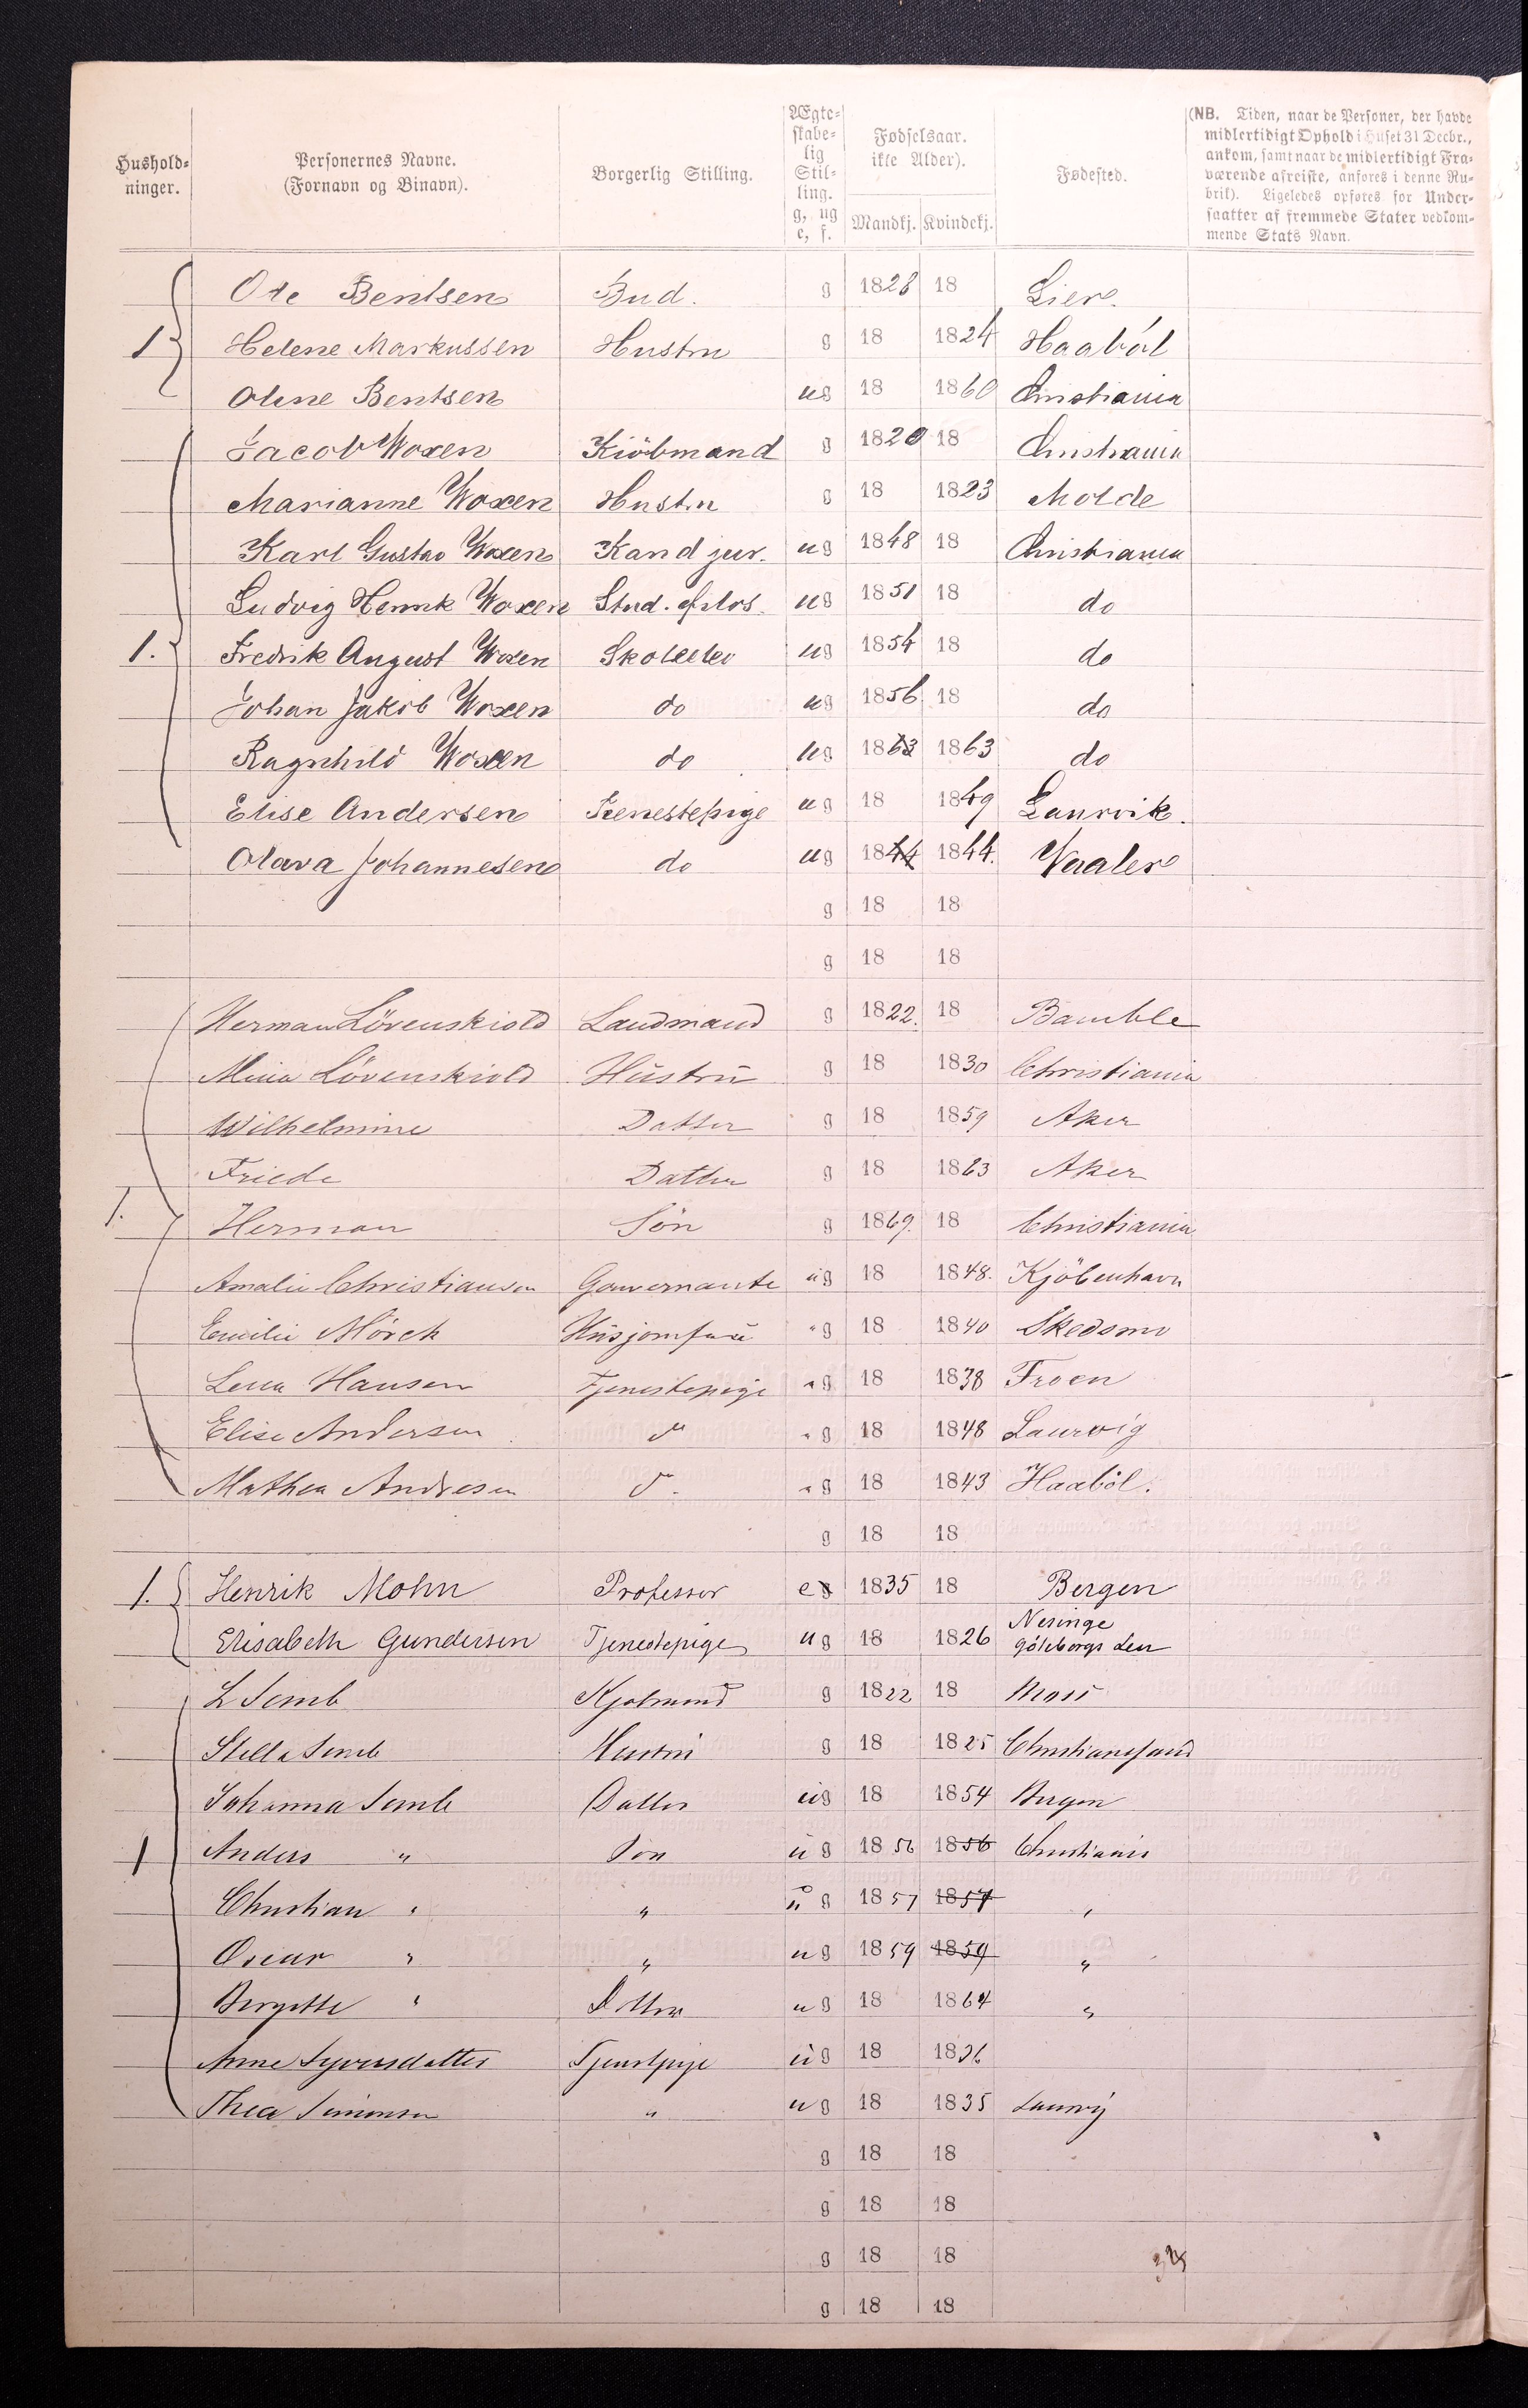 Hushold-
ninger.
Personernes Navne.
(Fornavn og Binavn).
Borgerlig Stilling.
Ægte-
skabe-
lig
Stil-
ling.
g, ug
e, f.
Fødselsaar.
ikke Alder).
Mandkj. Kvindekj.
Fødested.
(NB. Tiden, naar de Personer, der havde
midlertidigt Ophold i Huset 31 Decbr.,
ankom, samt naar de midlertidigt Fra-
værende afreiste, anføres i denne Ru-
brik). Ligeledes opføres for Under-
saatter af fremmede Stater vedkom-
mende Stats Navn.
Ole Bentsen Bud. g 1828 18 Lier
1 Helene Markussen Hustru g 18 1824 Haaböl
Oline Bentsen ug 18 1860 Christiania
Jacob Woxen Kiöbmand g 1820 18 Christiania
Marianne Woxen Hustru g 18 1823 Molde
Karl Gustav Woxen Kand jur. ug 1848 18 Christiania
Ludvig Henrik Woxen Stud. ug 1851 18 do
1. Fredrik August Woxen Skoleelev ug 1854 18 do
Johan Jakob Woxen do ug 1856 18 do
Ragnhild Woxen do ug 1863 1863 do
Elise Andersen Tjenestepige ug 18 1849 Laurvik.
Olava Johannesen do ug 1844 1844. Vaaler
g 18 18
g 18 18
Herman Lövenskiold Landmand g 1822. 18 Bamble
Mina Lövenskiold Hustru g 18 1830 Christiania
Wilhelmine Datter g 18 1859 Aker
Friede Datter g 18 1863 Aker
1. Herman Sön g 1869. 18 Christiania
Amalie Christiansen Gouvernante ug 18 1848. Kjöbenhavn
Emilie Mörch Husjomfru "g 18 1840 Skedsmo
Lena Hansen Tjenestepige "g 18 1838 Froen
Elise Andersen do "g 18 1848 Laurvig
Mathea Andresen do "g 18 1843 Haaböl.
g 18 18
1. Henrik Mohn Professor eg 1835 18 Bergen
Elisabeth Gundersen Tjenestepige ug 18 1826 Nesinge
Göteborgs Len
L Semb Kjøbmand g 1822 18 Moss
Stella Semb Hustru g 18 1825 Christiansand
Johanna Semb Datter ug 18 1854 Bergen
1 Anders " Søn ug 1856 1856 Christiania
Christian " " ug 1857 1857 "
Oscar " " ug 1859 1859 "
Bergitte " Datter ug 18 1864 "
Anne Syversdatter Tjenstpige ug 18 1836
Thea Simonsen " ug 18 1835 Laurvig
g 18 18
g 18 18
g 18 18
g 18 18